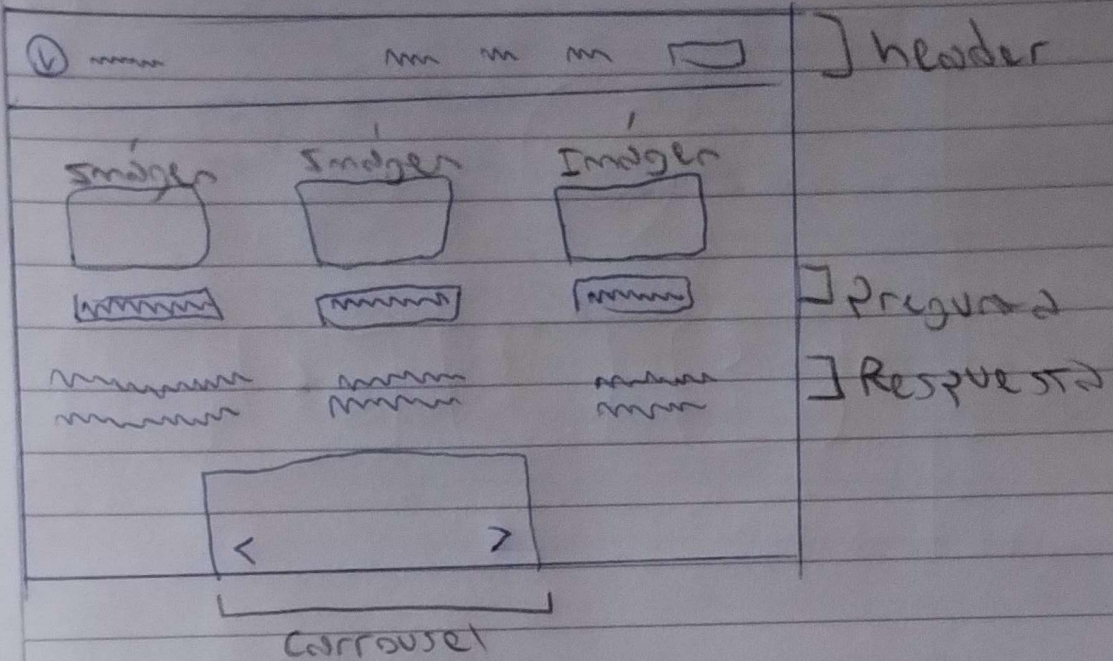 header
Imágen Imágen Imágen
Pregunta
Respuesta
< >
Carrousel